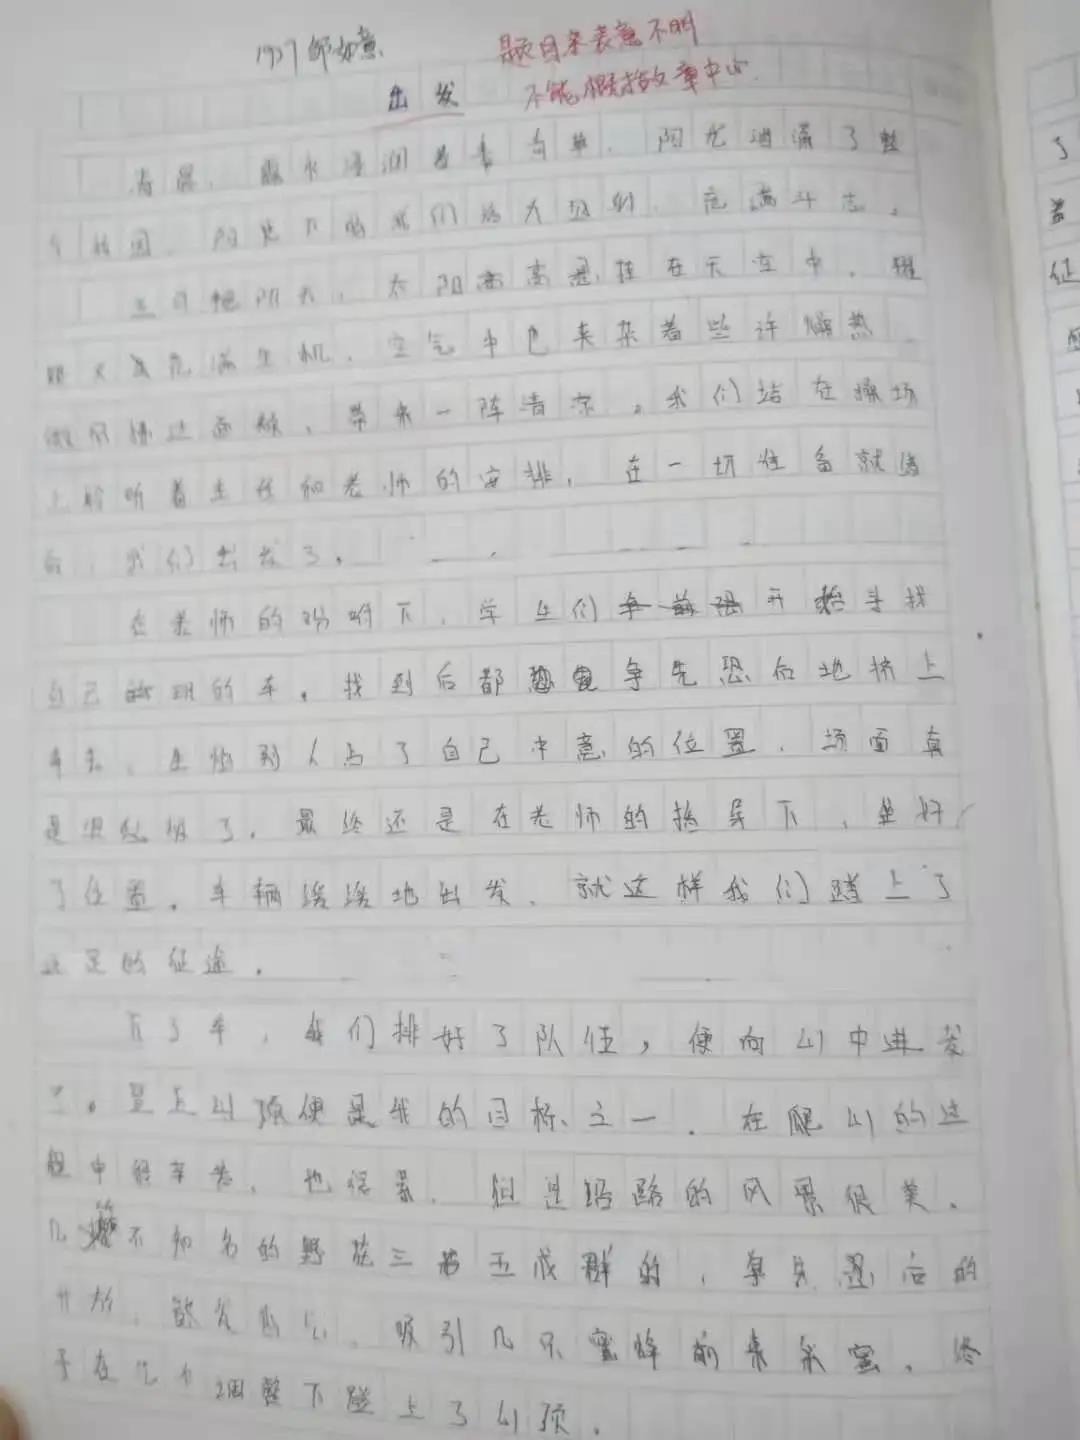 1927邹如意
题目未表意不明
不能概括文章中心
出发
清晨,露水浸润着青草,阳光洒满了整
个校园,阳光下的我们,充满斗志。
艳阳天,太阳高高悬挂在天空中,耀
眼又充满生机,空气中也夹杂着些许燥热
微风拂过面颊,带来一阵清凉。我们站在操场
上聆听着主任和老师的安排,在一切准备就绪
后,我们出发了。
在老师的吩咐下,学生们开始寻找
自己班的车。找到后都争先恐后地挤上
车去,生怕别人占了自己中意的位置,场面真
是混乱极了。最终还是在老师的指导下,坐好
了位置。车辆缓缓地出发,就这样我们踏上了
的征途。
下了车,我们排好了队伍,便向山中进发
登上山顶便是我的目标之一。在爬山的过
程中的辛苦,也很累,但是沿路的风景很美。
几不知名的野花三五成群的,争先恐后的
开放,散发,吸引几只蜜蜂前来采蜜。终
于在几个调整下登上了山顶。
了
着
征